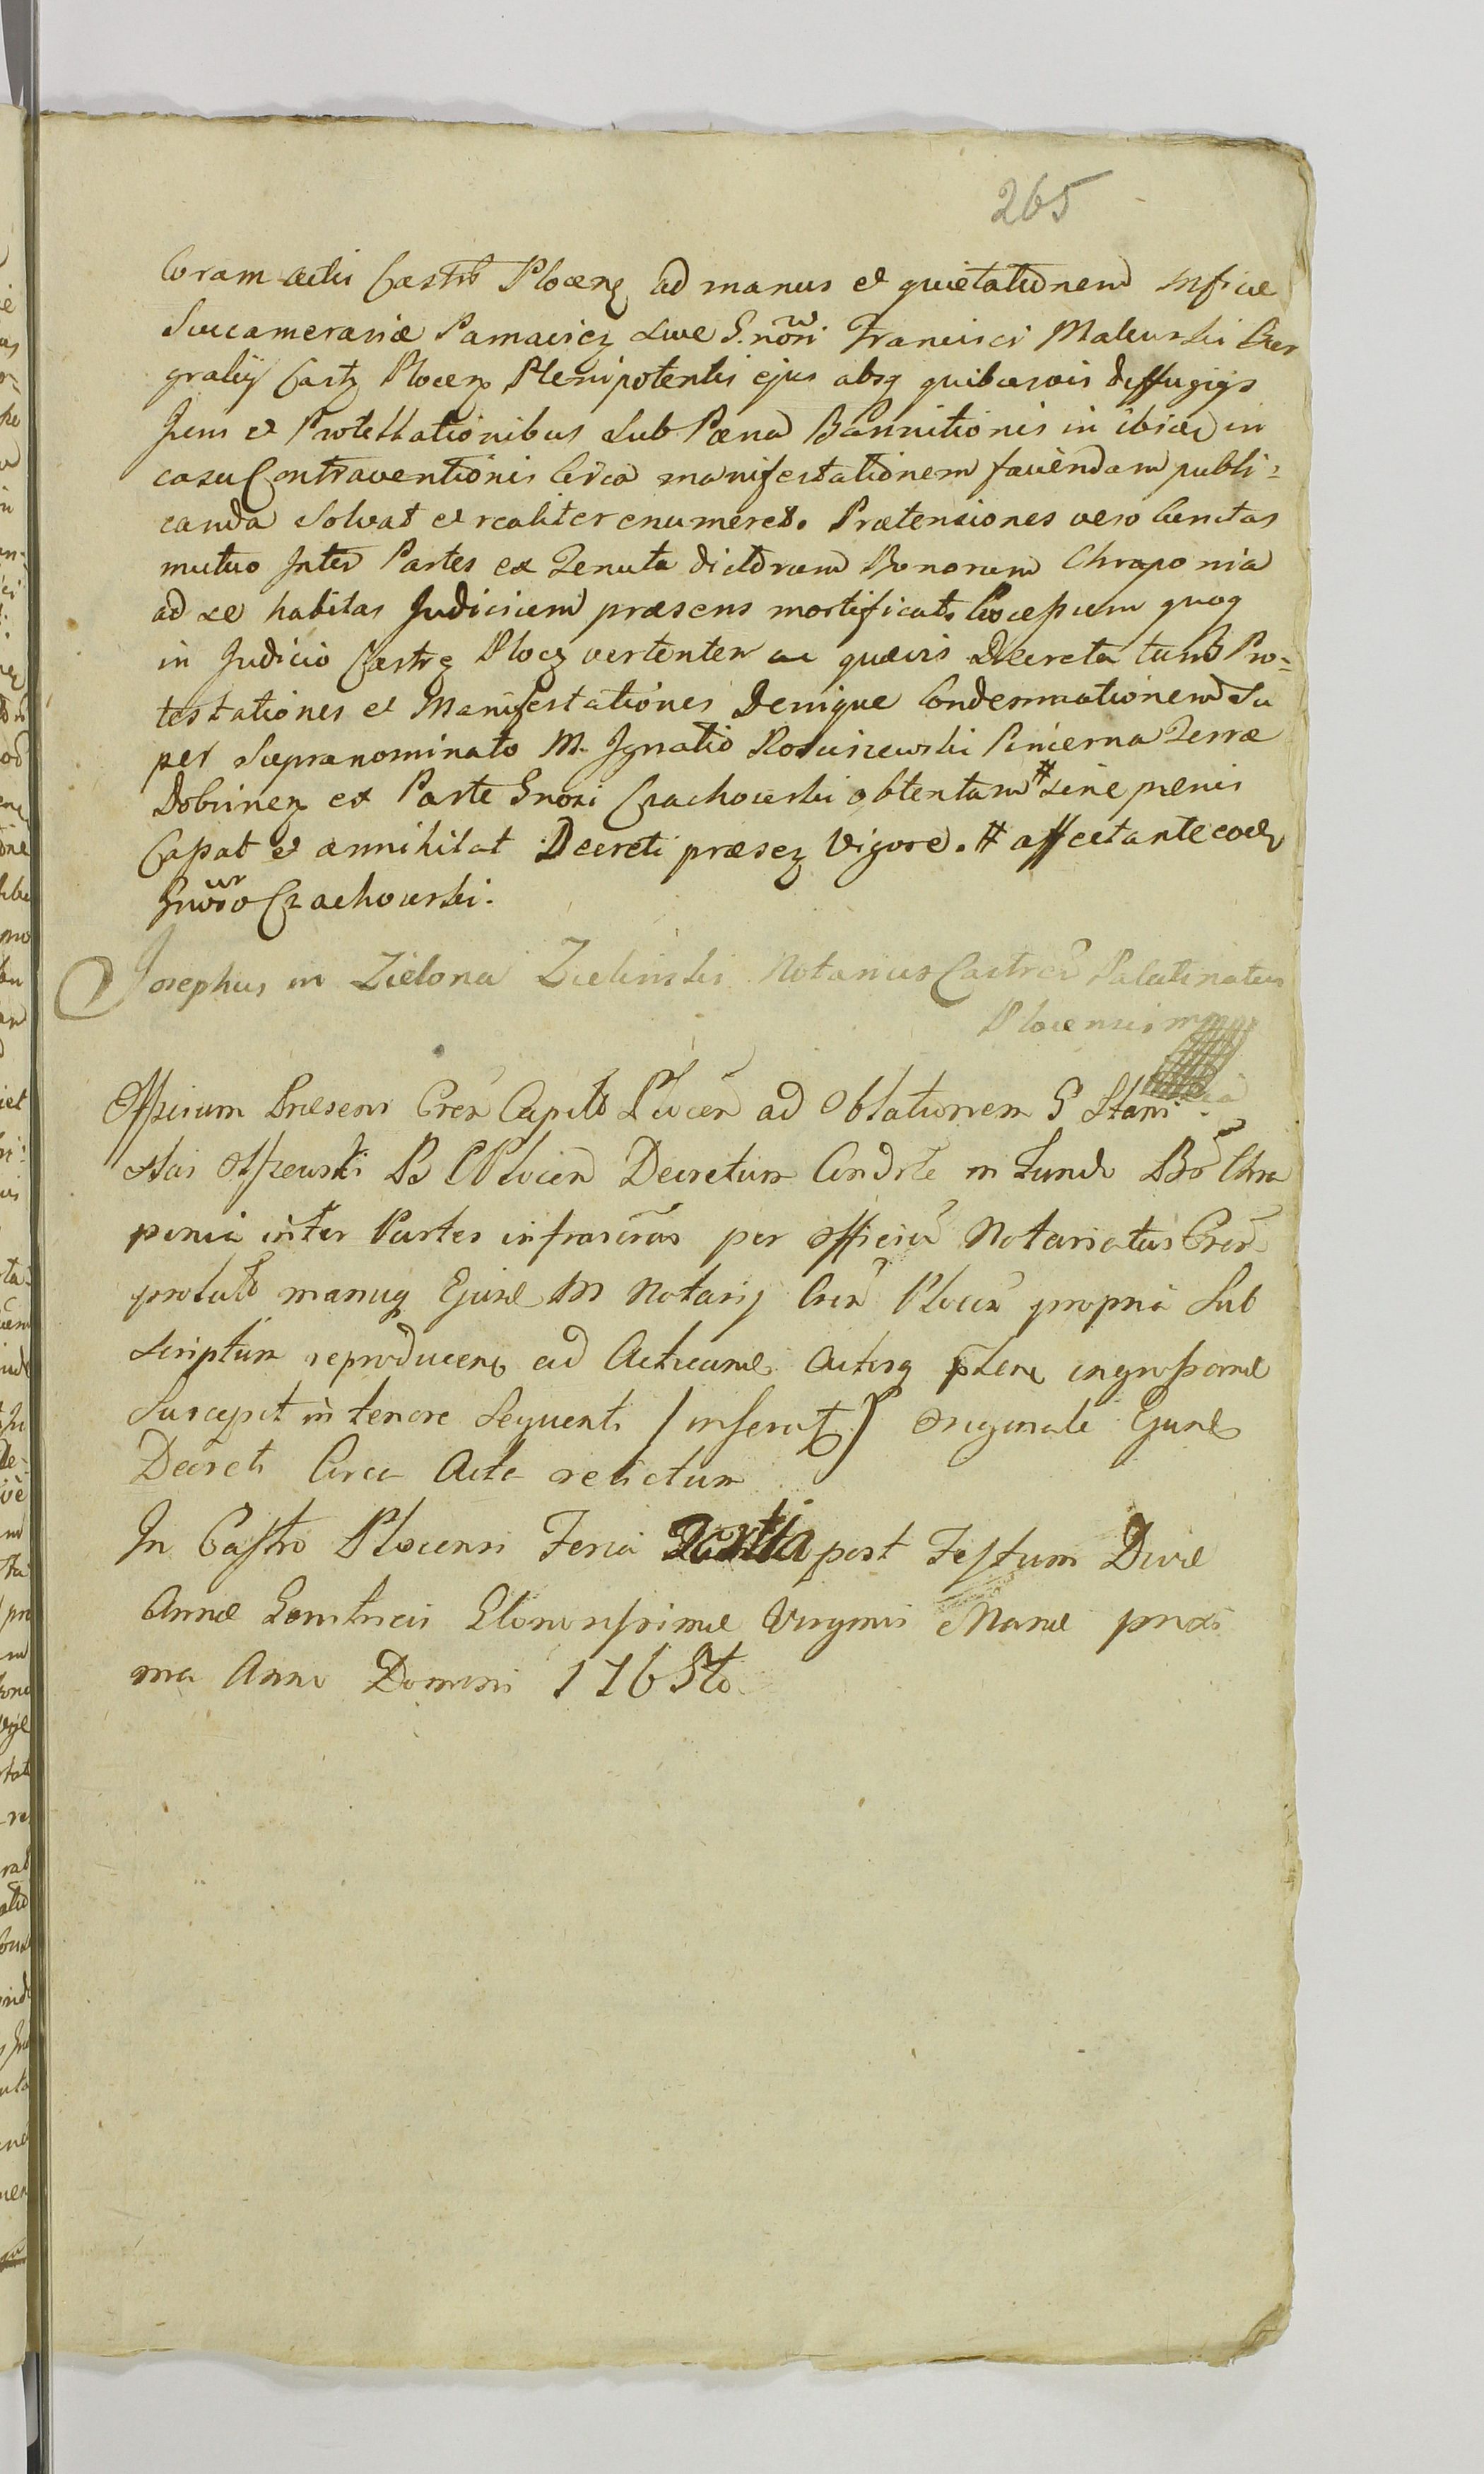 265
Coram actis Castrs Plocenz ad manus et quietationem Mficae
Succamerariae Pamavicz sive Gnori Francisci Makurski Bur
grabij Castz Plocenz Plenipotentis ejus absq quibusvis diffugijs
Juris et Protestationibus sub Paena Bannitionis in ibide in
casu Contraventionis Circa manifestationem faciendam publi=
canda Solvat et realiter enumeret. Praetensiones vero Cunctas
mutuo Inter Partes ex Tenuta dictorum Bonorum Chraponia
ad se habitas Judicium praesens mortificat. Processum quoq
in Judicio Castrz Plocz vertentem ac quaevis Decreta tum Pro=
testationes et Manifestationes Denique Condemnationem Su
per Supranominato M. Ignatio Rosciszewski Pincerna Terrae
Dobrinenz ex Parte Gnosi Czachowski obtentam # sine penis
Cassat et annihilat Decreti praesez Vigore. # affectante eod
Gnoso Czachowski.
Josephus in Zielona Zielinski Notarius Castren Palatinatus
Plocensis mp
Officium Praesens Cren Capitl Plocen ad Oblationem G Stani
slai B C Plocen Decretum Condrle in Fundo Bor Chra
ponia inter Partes infrascras per officiu Notariatus Cren
prolatu manuq Ejusd M Notarij Cren Plocen propria Sub
scriptum reproducens ad Acticand Actisq ingrossand
Suscepit in tenore sequenti / inserat / originale Ejusd
Decreti Circa Acta relictum
In Castro Plocensi Feria post Festum Divae
Annae Genitricis Gloriosissimae Virginis Mariae proxi
ma Anno Domini 1765to